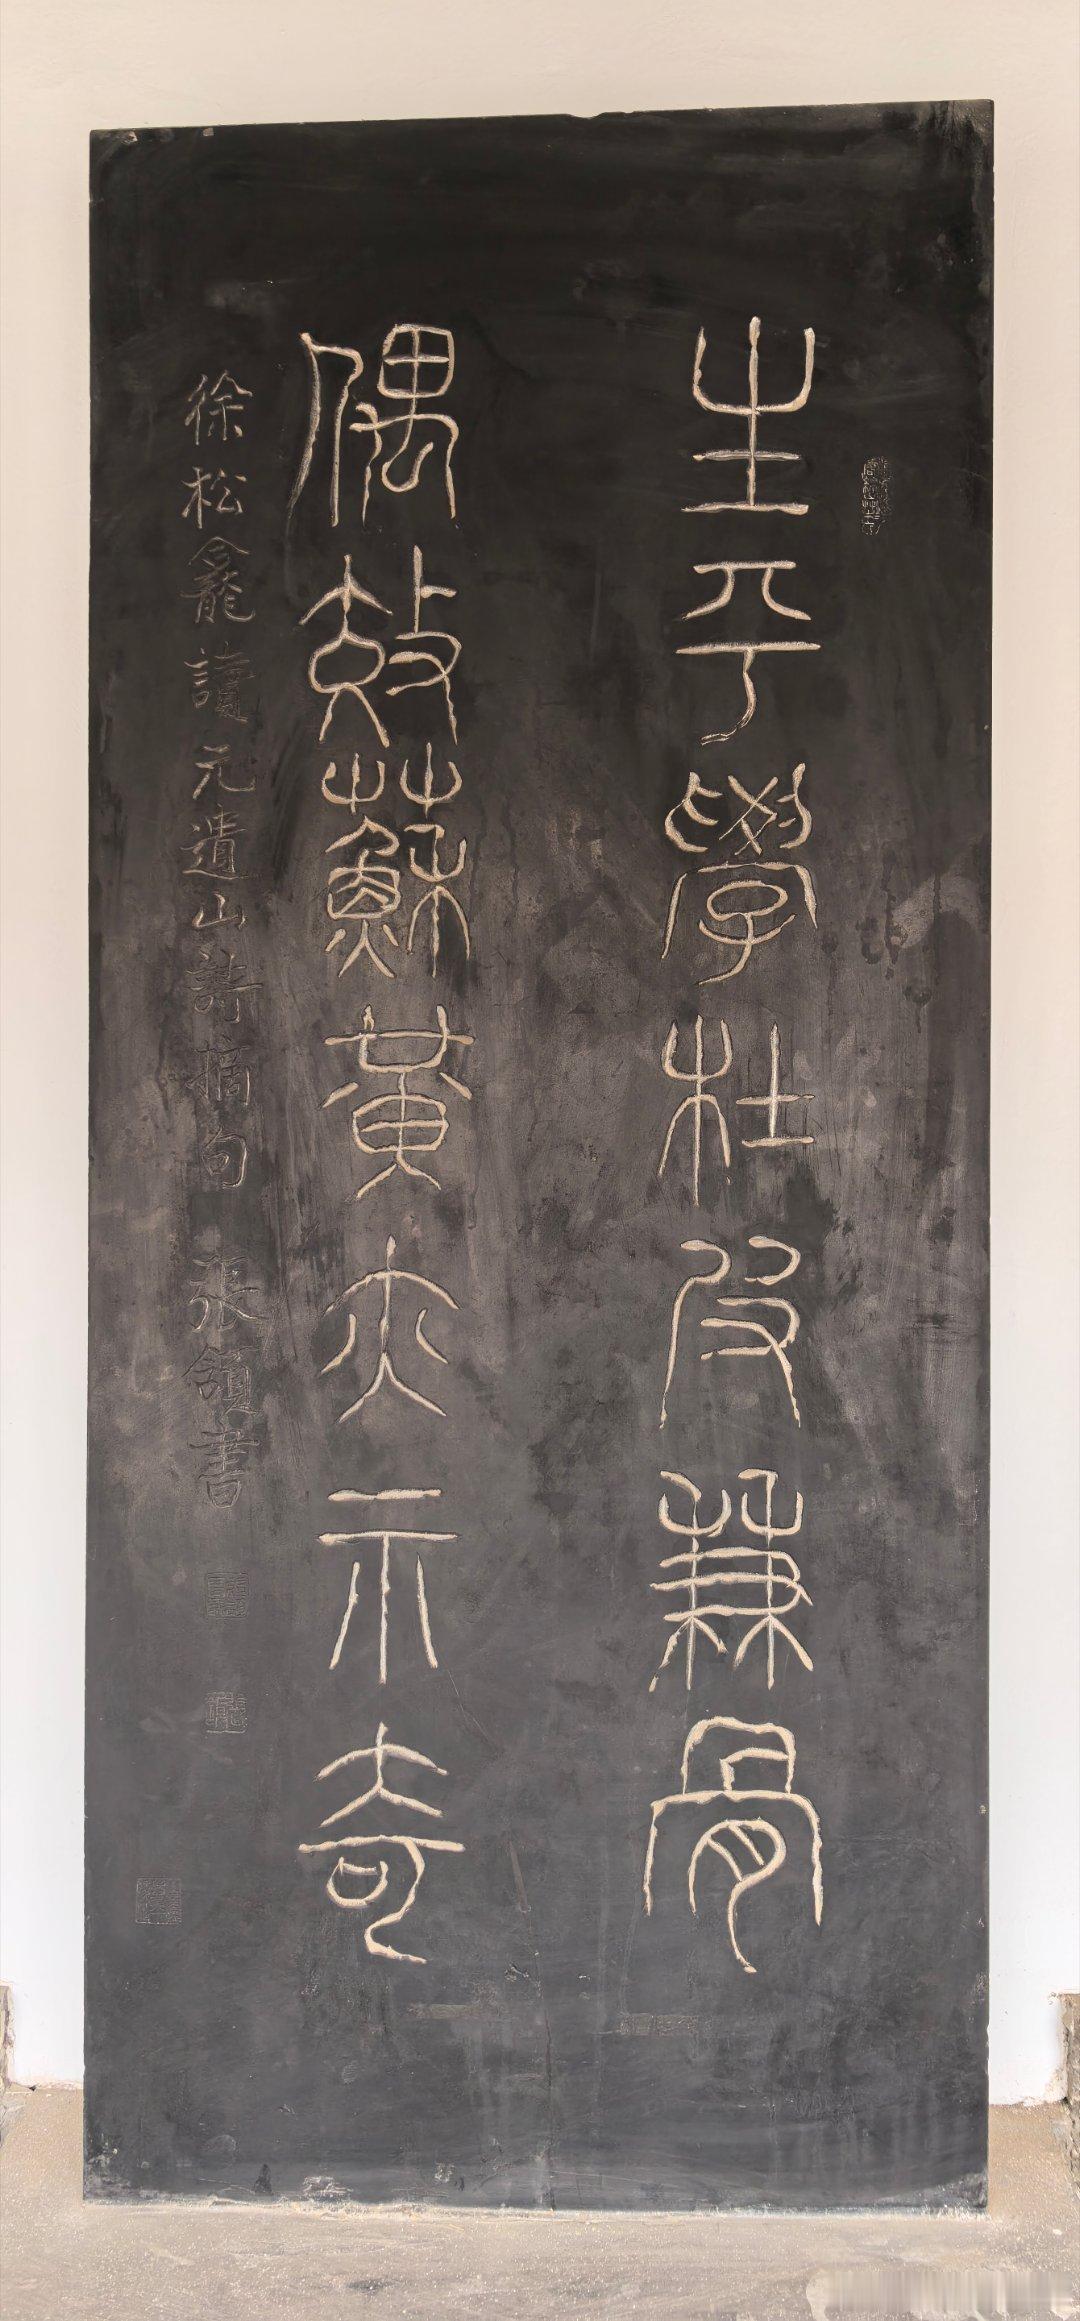 生平學杜皮兼骨
偶效蘇黃亦示奇
徐松龕讀元遺山詩摘句 張頷書